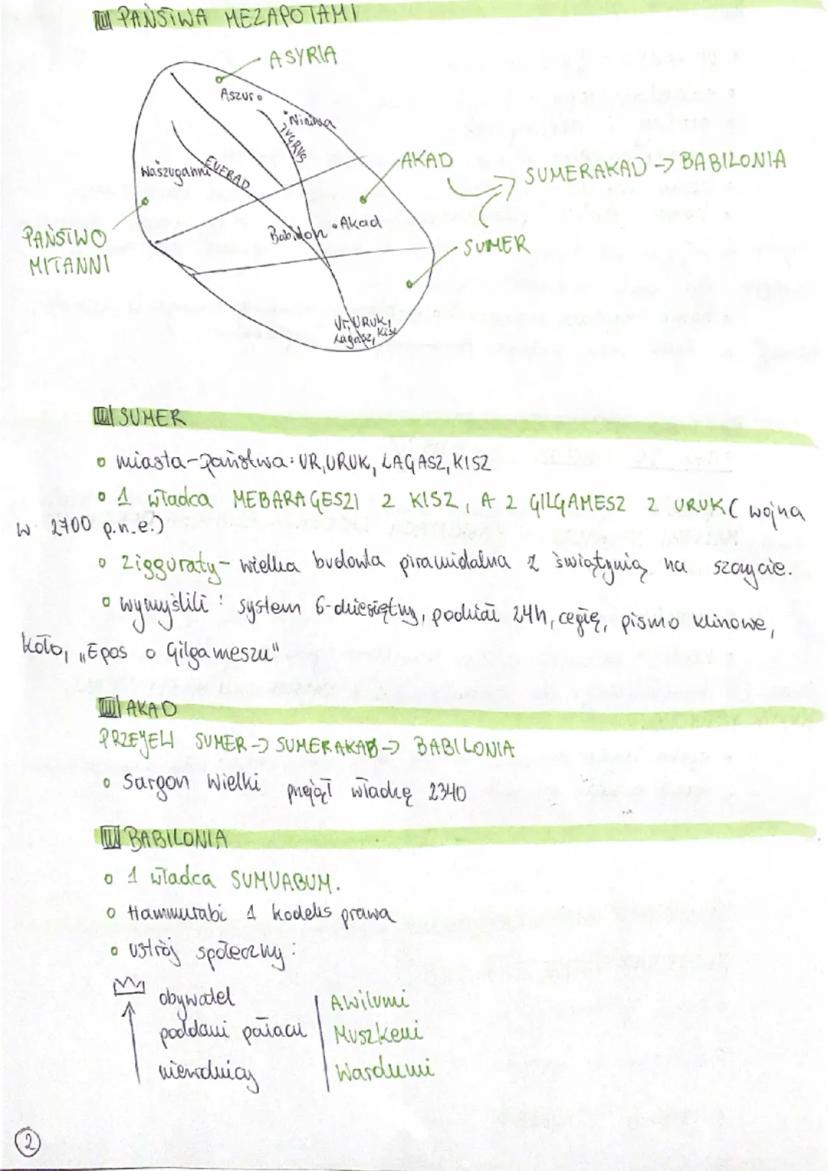 PAŃSTWA MEZAPOTAMI
ASYRIA
Aszur
Niniwa
TYGRYS
Waszuganni
EUFRAD
AKAD
SUMERAKAD → BABILONIA
PAŃSTWO
MITANNI
Babilon
Akad
SUMER
Ur, URUK,
Lagasz, Kisz
SUMER
miasta-państwa: UR, URUK, LAGASZ, KISZ
1 władca MEBARAGESZI Z KISZ, A 2 GILGAMESZ Z URUK ( wojna
w 2700 p.n.e.)
Zigguraty - wielka budowla piramidalna z świątynią na szczycie.
wymyślili: system 6-dziesiętny, podział 24h, cegłę, pismo klinowe,
koło, „Epos o Gilgameszu"
AKAD
PRZEJELI SUMER → SUMERAKAD → BABILONIA
Sargon Wielki przejął władzę 2340
BABILONIA
1 władca SUMUABUM.
Hammurabi 1 kodeks prawa
ustrój społeczny:
obywatel | Awilumi
poddani pałacu | Muszkeni
niewolnicy | Wardumi
2